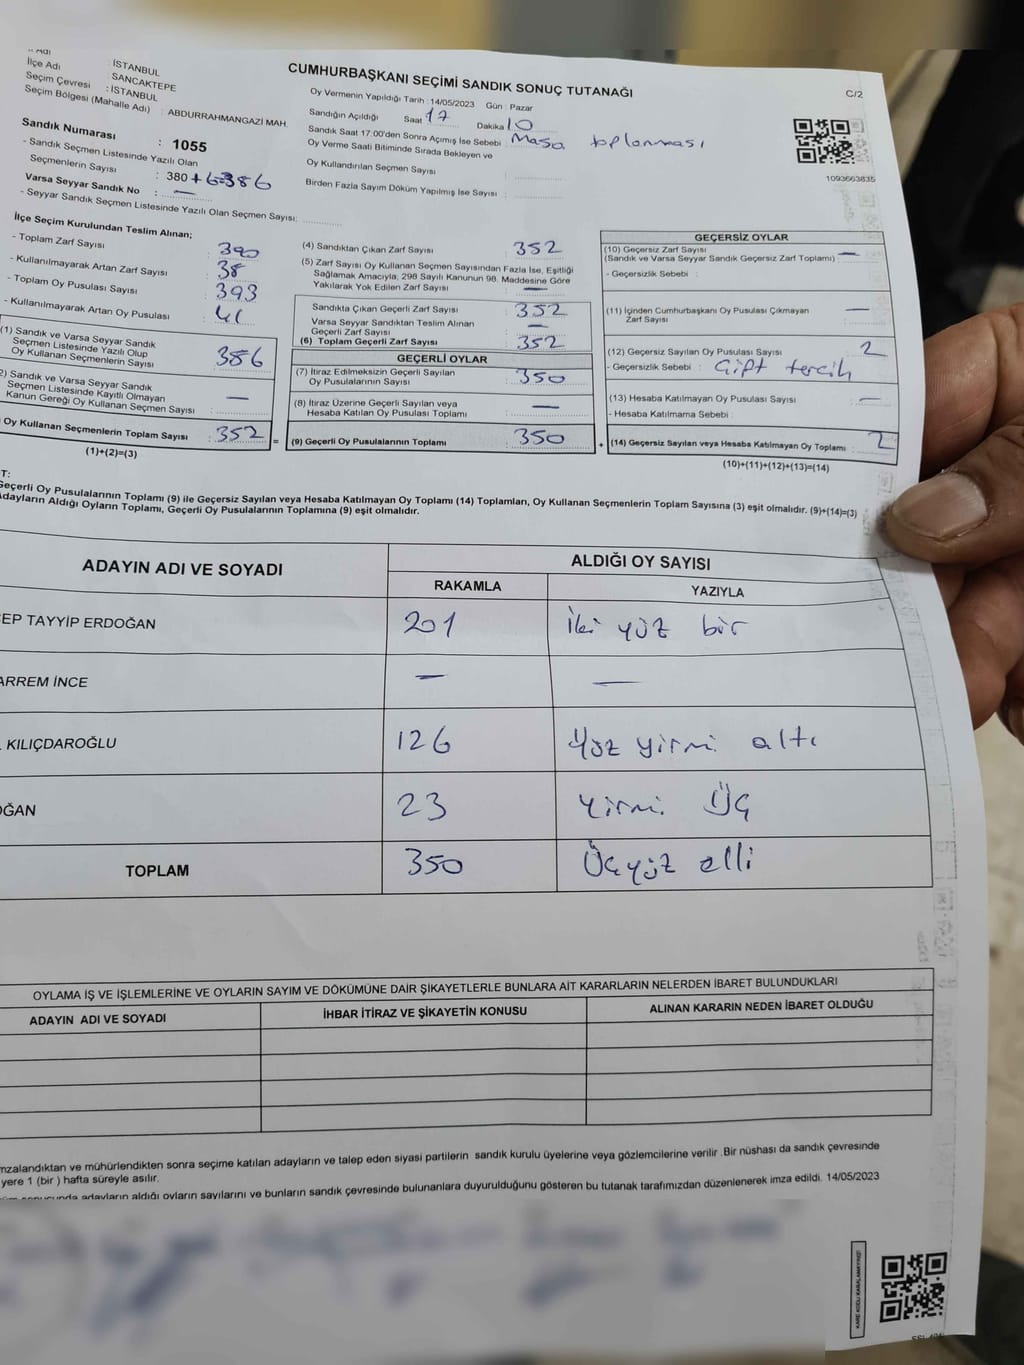 İlçe Adı : İSTANBUL
Seçim Çevresi : SANCAKTEPE
Seçim Bölgesi (Mahalle Adı) : İSTANBUL
: ABDURRAHMANGAZİ MAH.
CUMHURBAŞKANI SEÇİMİ SANDIK SONUÇ TUTANAĞI
C/2
Oy Vermenin Yapıldığı Tarih : 14/05/2023 Gün : Pazar
Sandığın Açıldığı Saat 17 Dakika 10
Sandık Saat 17:00'den Sonra Açımış İse Sebebi : Masa toplanması
Oy Verme Saati Bitiminde Sırada Bekleyen ve
Oy Kullandırılan Seçmen Sayısı :
Birden Fazla Sayım Döküm Yapılmış İse Sayısı :
1093663835
Sandık Numarası : 1055
- Sandık Seçmen Listesinde Yazılı Olan
Seçmenlerin Sayısı : 380 + 6=386
Varsa Seyyar Sandık No : —
- Seyyar Sandık Seçmen Listesinde Yazılı Olan Seçmen Sayısı:
İlçe Seçim Kurulundan Teslim Alınan;
- Toplam Zarf Sayısı : 390
- Kullanılmayarak Artan Zarf Sayısı : 38
- Toplam Oy Pusulası Sayısı : 393
- Kullanılmayarak Artan Oy Pusulası : 41
(1) Sandık ve Varsa Seyyar Sandık
Seçmen Listesinde Yazılı Olup
Oy Kullanan Seçmenlerin Sayısı : 386
2) Sandık ve Varsa Seyyar Sandık
Seçmen Listesinde Kayıtlı Olmayan
Kanun Gereği Oy Kullanan Seçmen Sayısı : —
Oy Kullanan Seçmenlerin Toplam Sayısı : 352 =
(1)+(2)=(3)
(4) Sandıktan Çıkan Zarf Sayısı : 352
(5) Zarf Sayısı Oy Kullanan Seçmen Sayısından Fazla İse, Eşitliği
Sağlamak Amacıyla, 298 Sayılı Kanunun 98. Maddesine Göre
Yakılarak Yok Edilen Zarf Sayısı : —
Sandıkta Çıkan Geçerli Zarf Sayısı : 352
Varsa Seyyar Sandıktan Teslim Alınan
Geçerli Zarf Sayısı : —
(6) Toplam Geçerli Zarf Sayısı : 352
GEÇERLİ OYLAR
(7) İtiraz Edilmeksizin Geçerli Sayılan
Oy Pusulalarının Sayısı : 350
(8) İtiraz Üzerine Geçerli Sayılan veya
Hesaba Katılan Oy Pusulası Toplamı : —
(9) Geçerli Oy Pusulalarının Toplamı : 350 +
GEÇERSİZ OYLAR
(10) Geçersiz Zarf Sayısı : —
(Sandık ve Varsa Seyyar Sandık Geçersiz Zarf Toplamı)
- Geçersizlik Sebebi :
(11) İçinden Cumhurbaşkanı Oy Pusulası Çıkmayan
Zarf Sayısı : —
(12) Geçersiz Sayılan Oy Pusulası Sayısı : 2
- Geçersizlik Sebebi : Çift tercih
(13) Hesaba Katılmayan Oy Pusulası Sayısı : —
- Hesaba Katılmama Sebebi :
(14) Geçersiz Sayılan veya Hesaba Katılmayan Oy Toplamı : 2
(10)+(11)+(12)+(13)=(14)
T:
Geçerli Oy Pusulalarının Toplamı (9) ile Geçersiz Sayılan veya Hesaba Katılmayan Oy Toplamı (14) Toplamları, Oy Kullanan Seçmenlerin Toplam Sayısına (3) eşit olmalıdır. (9)+(14)=(3)
Adayların Aldığı Oyların Toplamı, Geçerli Oy Pusulalarının Toplamına (9) eşit olmalıdır.
ADAYIN ADI VE SOYADI ALDIĞI OY SAYISI
RAKAMLA YAZIYLA
EP TAYYİP ERDOĞAN 201 İki yüz bir
ARREM İNCE — —
KILIÇDAROĞLU 126 Yüz yirmi altı
OĞAN 23 Yirmi Üç
TOPLAM 350 Üçyüz elli
OYLAMA İŞ VE İŞLEMLERİNE VE OYLARIN SAYIM VE DÖKÜMÜNE DAİR ŞİKAYETLERLE BUNLARA AİT KARARLARIN NELERDEN İBARET BULUNDUKLARI
ADAYIN ADI VE SOYADI İHBAR İTİRAZ VE ŞİKAYETİN KONUSU ALINAN KARARIN NEDEN İBARET OLDUĞU
mzalandıktan ve mühürlendikten sonra seçime katılan adayların ve talep eden siyasi partilerin sandık kurulu üyelerine veya gözlemcilerine verilir .Bir nüshası da sandık çevresinde
yere 1 (bir ) hafta süreyle asılır.
sonucunda adayların aldığı oyların sayılarını ve bunların sandık çevresinde bulunanlara duyurulduğunu gösteren bu tutanak tarafımızdan düzenlenerek imza edildi. 14/05/2023
KARE KODU KARALAMAYINIZ!